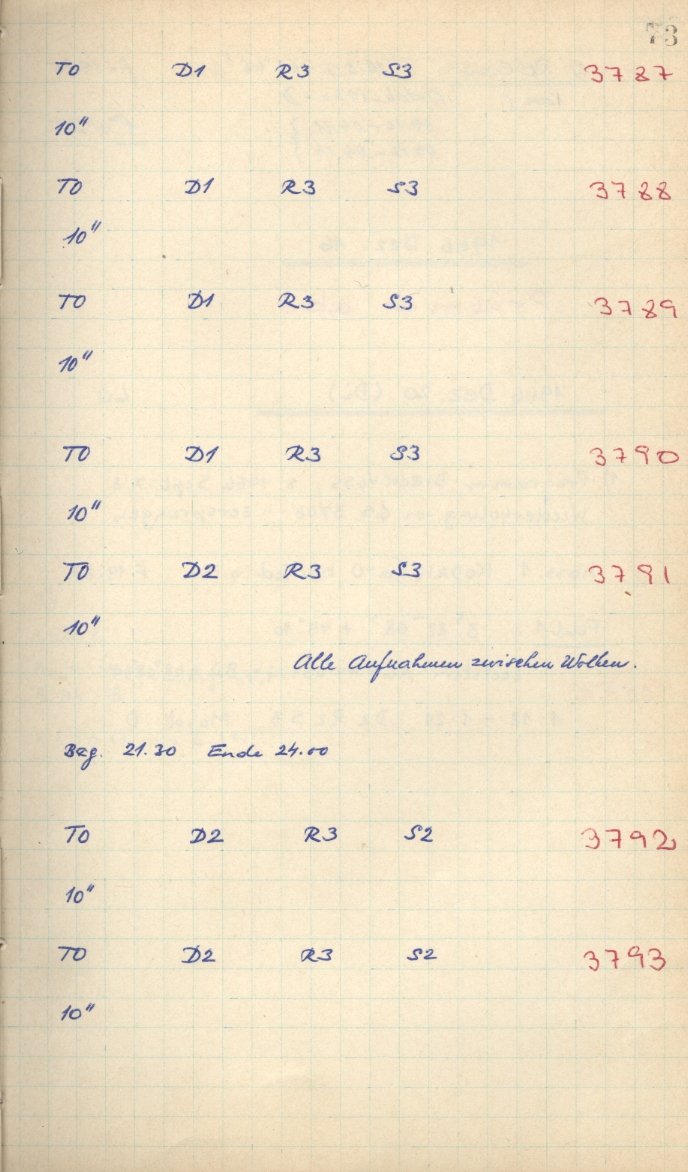 73
TO D1 R3 S3 3787
10"
TO D1 R3 S3 3788
10"
TO D1 R3 S3 3789
10"
TO D1 R3 S3 3790
10"
TO D2 R3 S3 3791
10"
Alle Aufnahmen zwischen Wolken.
Beg. 21.30 Ende 24.00
TO D2 R3 S2 3792
10"
TO D2 R3 S2 3793
10"